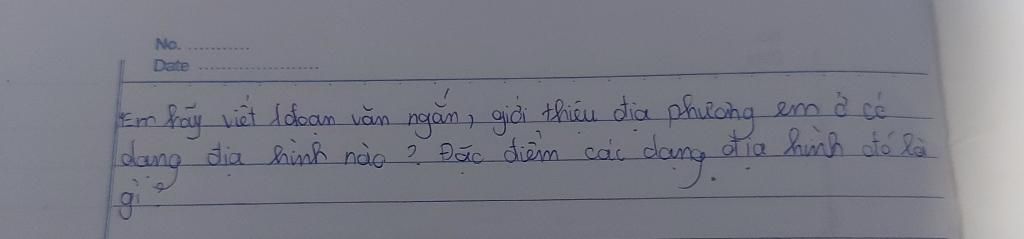 No. ...........
Date .....................
Em hãy viết 1 đoạn văn ngắn, giới thiệu địa phương em ở có
dạng địa hình nào ? Đặc điểm các dạng địa hình đó là
gì ?